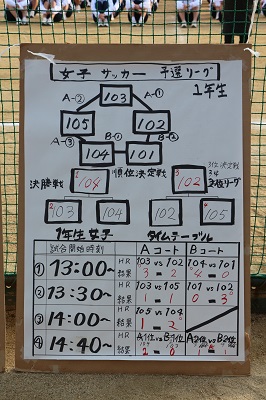 女子 サッカー 予選リーグ
1年生
103
A-②
A-①
105
102
A-③
B-①
B-②
104
101
決勝戦
104
順位決定戦
3位決定戦
102
103
104
102
105
1年生 女子
タイムテーブル
試合開始時刻
HR
結果
Aコート
Bコート
① 13:00~
HR
結果
103 vs 102
3 - 2
104 vs 101
4 - 0
② 13:30~
HR
結果
103 vs 105
1 - 1
101 vs 102
0 - 3
③ 14:00~
HR
結果
105 vs 104
1 - 2
④ 14:40~
HR
結果
A1位 vs B1位
2 - 0
A2位 vs B2位